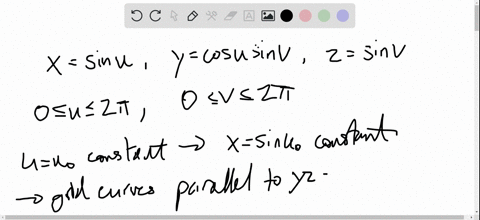 x = sinu, y = cosu sinv, z = sinv
0≤u≤2π, 0≤v≤2π
u=u₀ constant → x=sinu₀ constant
→ grid curves parallel to yz-